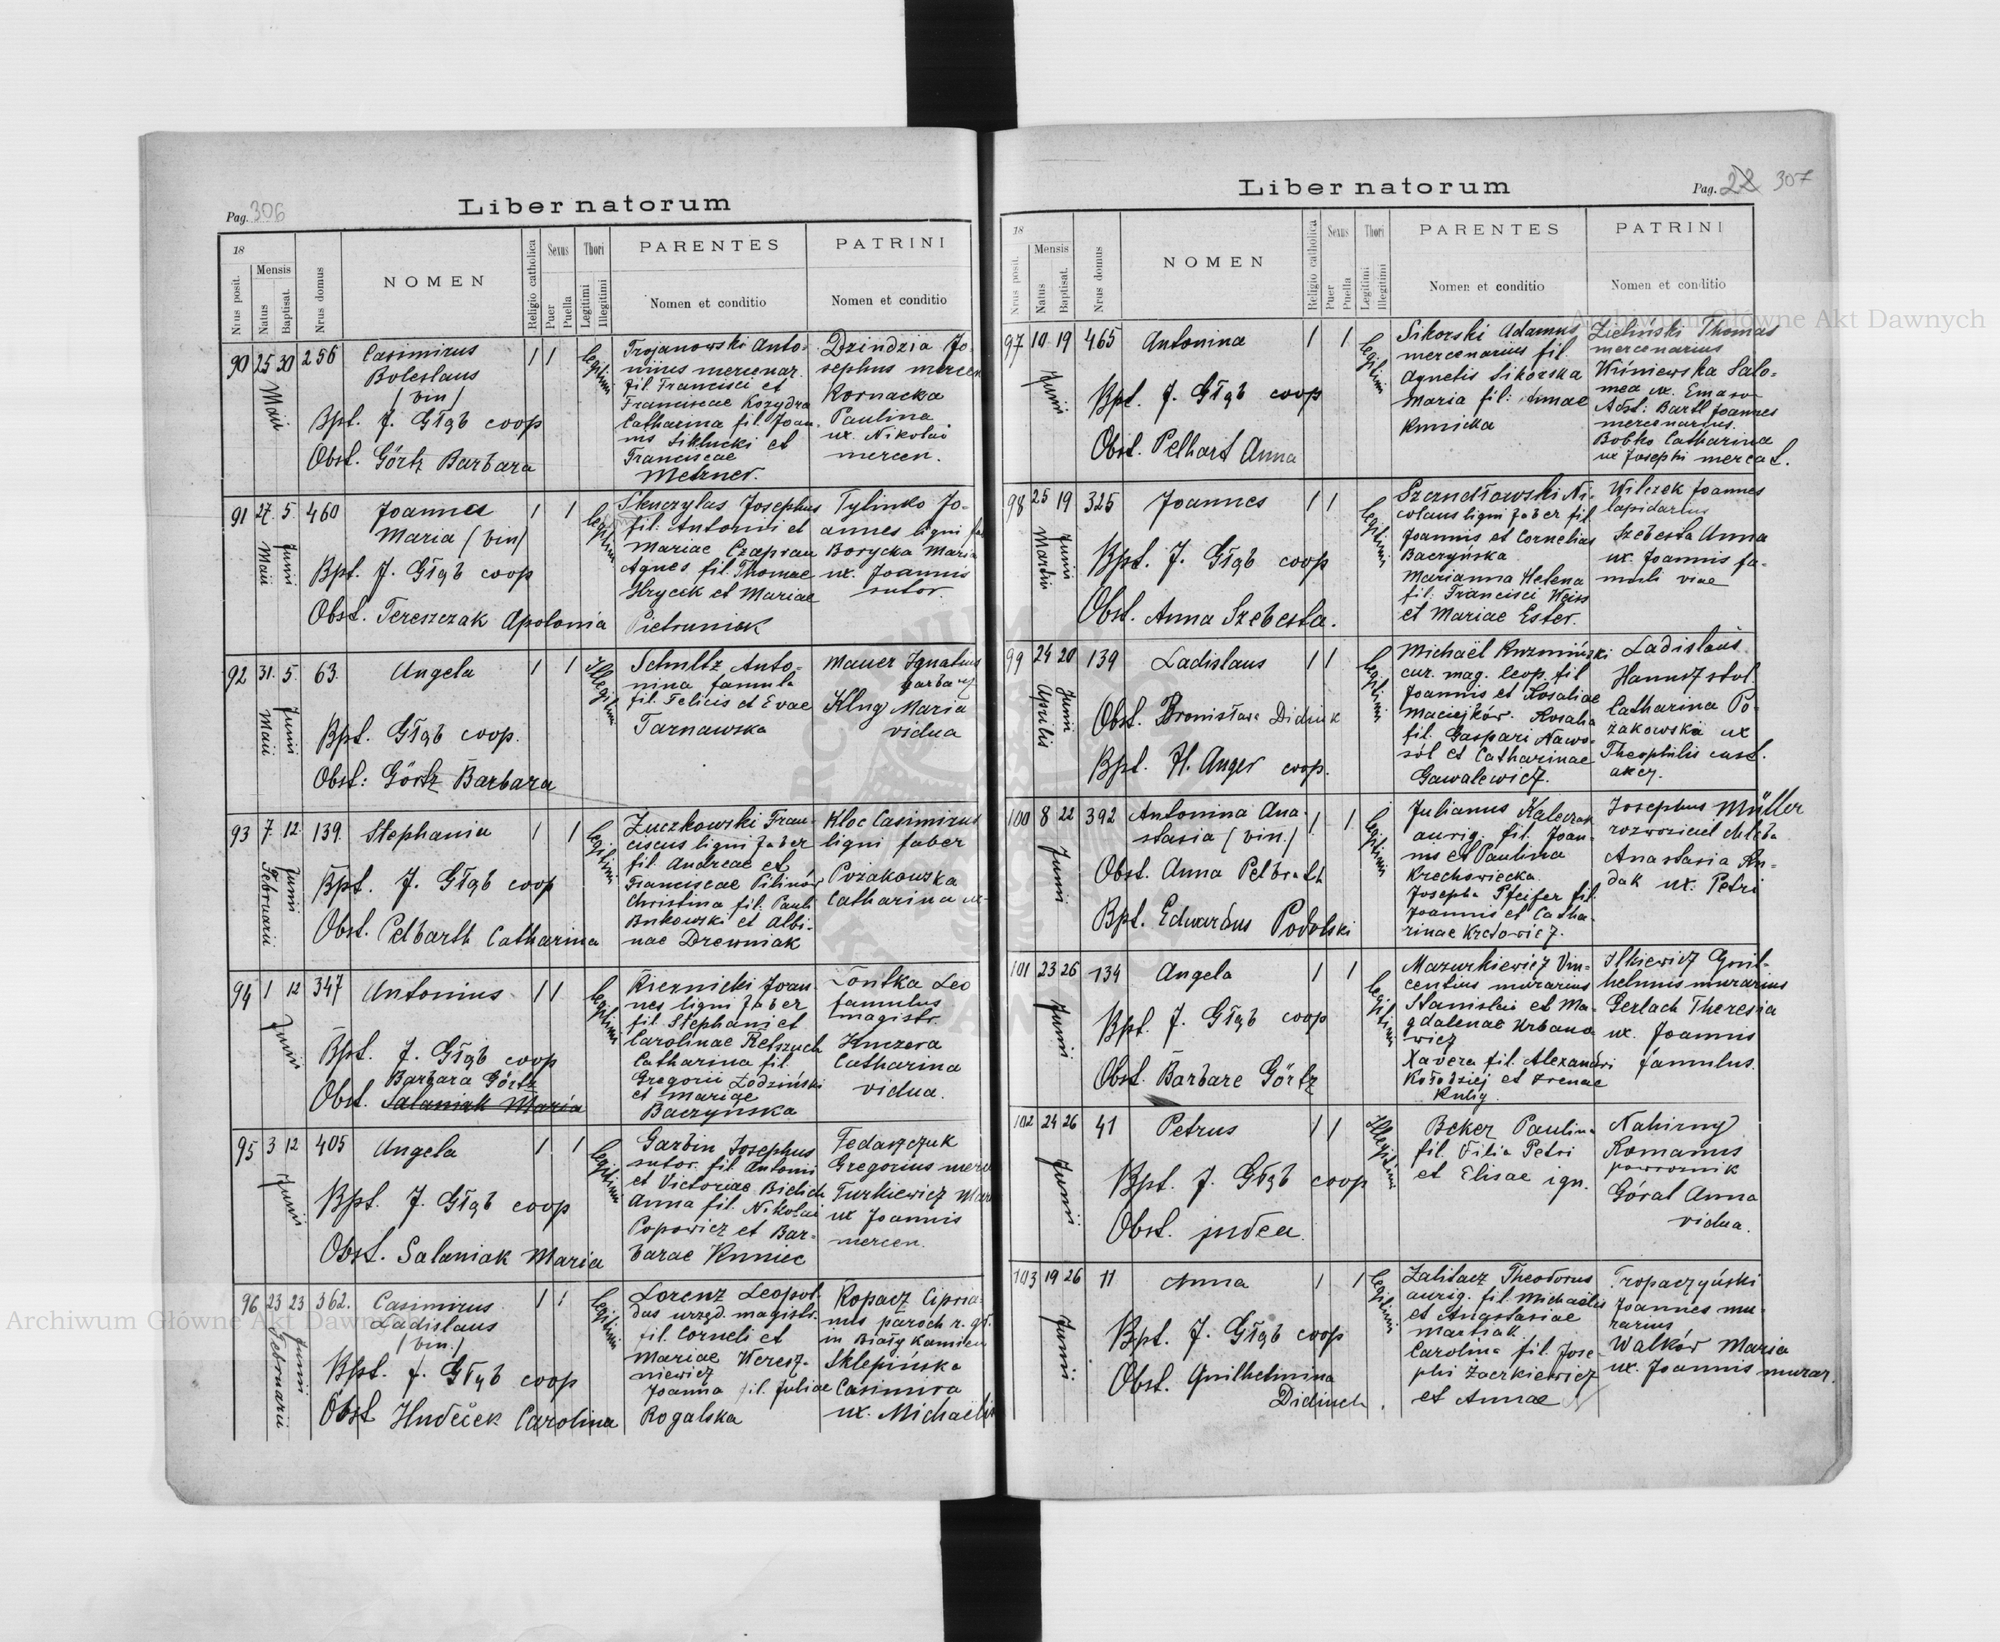 Pag. 306
Liber natorum
18
Nrus posit.
Mensis
Natus
Baptisat.
Nrus domus
NOMEN
Religio catholica
Sexus
Puer
Puella
Thori
Legitimi
Illegitimi
PARENTES
Nomen et conditio
PATRINI
Nomen et conditio
90 25 30 Maii 256
Casimirus
Boleslaus
(bin)
Bpt. J. Głąb coop
Obst. Görtz Barbara
1 1
legitimi
Trojanowski Anto-
ninus mercenar.
fil. Francisci et
Franciscae Kozydra
Catharina fil. Joan-
nis Siklucki et
Franciscae
Metzner.
Dzindzia Jo-
sephus mercen
Kornacka
Paulina
ux. Nikolai
mercen.
91 27. 5. Maii Junii 460
Joannes
Maria (bin)
Bpt. J. Głąb coop
Obst. Tereszczak Apolonia
1 1
legitimi
Skuczylas Josephus
fil. Antonii et
Mariae Czapran
Agnes fil. Thomae
Hrycek et Mariae
Pietruniak
Tylinko Jo-
annes ligni fa
Borycka Maria
ux. Joannis
sutor.
92 31. 5. Maii Junii 63.
Angela
Bpt. Głąb coop.
Obst: Görtz Barbara
1 1
Illegitimi
Schultz Anto-
nina famula
fil. Felicis et Evae
Tarnawska
Mauer Ignatius
garbarz
Klug Maria
vidua
93 7. 12. Februarii Junii 139.
Stephania
Bpt. J. Głąb coop
Obst. Pelbarth Catharina
1 1
legitimi
Żuczkowski Fran-
ciscus ligni faber
fil. Andreae et
Franciscae Pilinów
Christina fil. Pauli
Bukowski et Albi-
nae Drewniak
Kloc Casimirus
ligni faber
Pożakowska
Catharina ux-
94 1 12 Junii 347
Antonius
Bpt. J. Głąb coop
Barbara Görtz
Obst. Salaniak Maria
1 1
legitimi
Kiernicki Joan-
nes ligni faber
fil. Stephani et
Carolinae Retszuch
Catharina fil.
Gregorii Łodziński
et Mariae
Baczyńska
Lontka Leo
famulus
magistr.
Kuczera
Catharina
vidua.
95 3 12 Junii 405
Angela
Bpt. J. Głąb coop
Obst. Salaniak Maria
1 1
legitimi
Garbin Josephus
sutor. fil. Antonii
et Victoriae Bielich
Anna fil. Nikolai
Popowicz et Bar-
barae Kuniec
Fedaszczuk
Gregorius merc
Turkiewicz Maria
ux Joannis
mercen.
96 23 23 Februarii Junii 362.
Casimirus
Ladislaus
(bin.)
Bpt. J. Głąb coop
Obst Hudeček Carolina
1 1
legitimi
Lorenz Leopol-
dus urzęd. magistr.
fil. Corneli et
Mariae Weresz-
niewicz
Joanna fil. Juliae
Rogalska
Kopacz Cipria-
nus paroch r. gr.
in Biały Kamień
Sklepińska
Casimira
ux. Michaelis
Pag. 22 307
Liber natorum
18
Nrus posit.
Mensis
Natus
Baptisat.
Nrus domus
NOMEN
Religio catholica
Sexus
Puer
Puella
Thori
Legitimi
Illegitimi
PARENTES
Nomen et conditio
PATRINI
Nomen et conditio
97 10 19 Junii 465
Antonina
Bpt. J. Głąb coop
Obst. Pelhart Anna
1 1
legitimi
Sikorski Adamus
mercenarius fil.
Agnetis Sikorska
Maria fil: Annae
Kunicka
Zieliński Thomas
mercenarius
Wiśniewska Salo-
mea ux. Emaro
Adst: Bartl Joannes
mercenarius.
Bobko Catharina
ux Josephi mercat.
98 25 19 Martii Junii 325
Joannes
Bpt. J. Głąb coop
Obst. Anna Szebesta.
1 1
legitimi
Szandłowski Ni-
colaus ligni faber fil
Joannis et Cornelias
Baczyńska
Marianna Helena
fil: Francisci Weiss
et Mariae Ester.
Wilczek Joannes
lapidarius
Szebesta Anna
ux. Joannis fa-
muli viae
99 24 20 Aprilis Junii 139
Ladislaus
Obst. Bronisława Didiuk
Bpt. H. Anger coop.
1 1
legitimi
Michaël Kuzmiński
cur. mag. leop. fil
Joannis et Rosaliae
Maciejków. Rosalia
fil. Gaspari Nawo-
sól et Catharinae
Gawalewicz.
Ladislaus
Hanusz stol.
Catharina Po-
żakowska ux
Theophilis cust.
akcy.
100 8 22 Junii 392
Antonina Ana-
stasia (bin.)
Obst. Anna Pelbrath
Bpt. Eduardus Podolski
1 1
legitimi
Julianus Kaleczak
aurig. fil. Joan-
nis et Paulina
Krechowiecka
Josepha Pfeifer fil
Joannis et Catha-
rinae Kretowicz.
Josephus Müller
rozwoziciel chleba
Anastasia Ru-
dak ux. Petri
101 23 26 Junii 134
Angela
Bpt. J. Głąb coop
Obst. Barbare Görtz
1 1
legitimi
Mazurkiewicz Vin-
centius murarius
Stanislai et Ma-
gdalenae Urbano
wicz
Xavera fil. Alexandri
Kołodziej et Irenae
Kulig
Ilkiewicz Guil-
helmus murarius
Gerlach Theresia
ux. Joannis
famulus.
102 24 26 Junii 41
Petrus
Bpt. J. Głąb coop
Obst. judea.
1 1
Illegitimi
Beker Paulina
fil. Filia Petri
et Elisae ign.
Nahirny
Romanus
powroznik
Góral Anna
vidua.
103 19 26 Junii 11
Anna
Bpt. J. Głąb coop
Obst. Guilhelmina
Didiuch.
1 1
legitimi
Zalitacz Theodorus
aurig. fil. Michaelis
et Anastasiae
Martiak.
Carolina fil. Jose-
phi Zaczkiewicz
et Annae
Tropaczyński
Joannes mu-
rarius
Walków Maria
ux. Joannis murar.
Archiwum Główne Akt Dawnych
Archiwum Główne Akt Dawnych